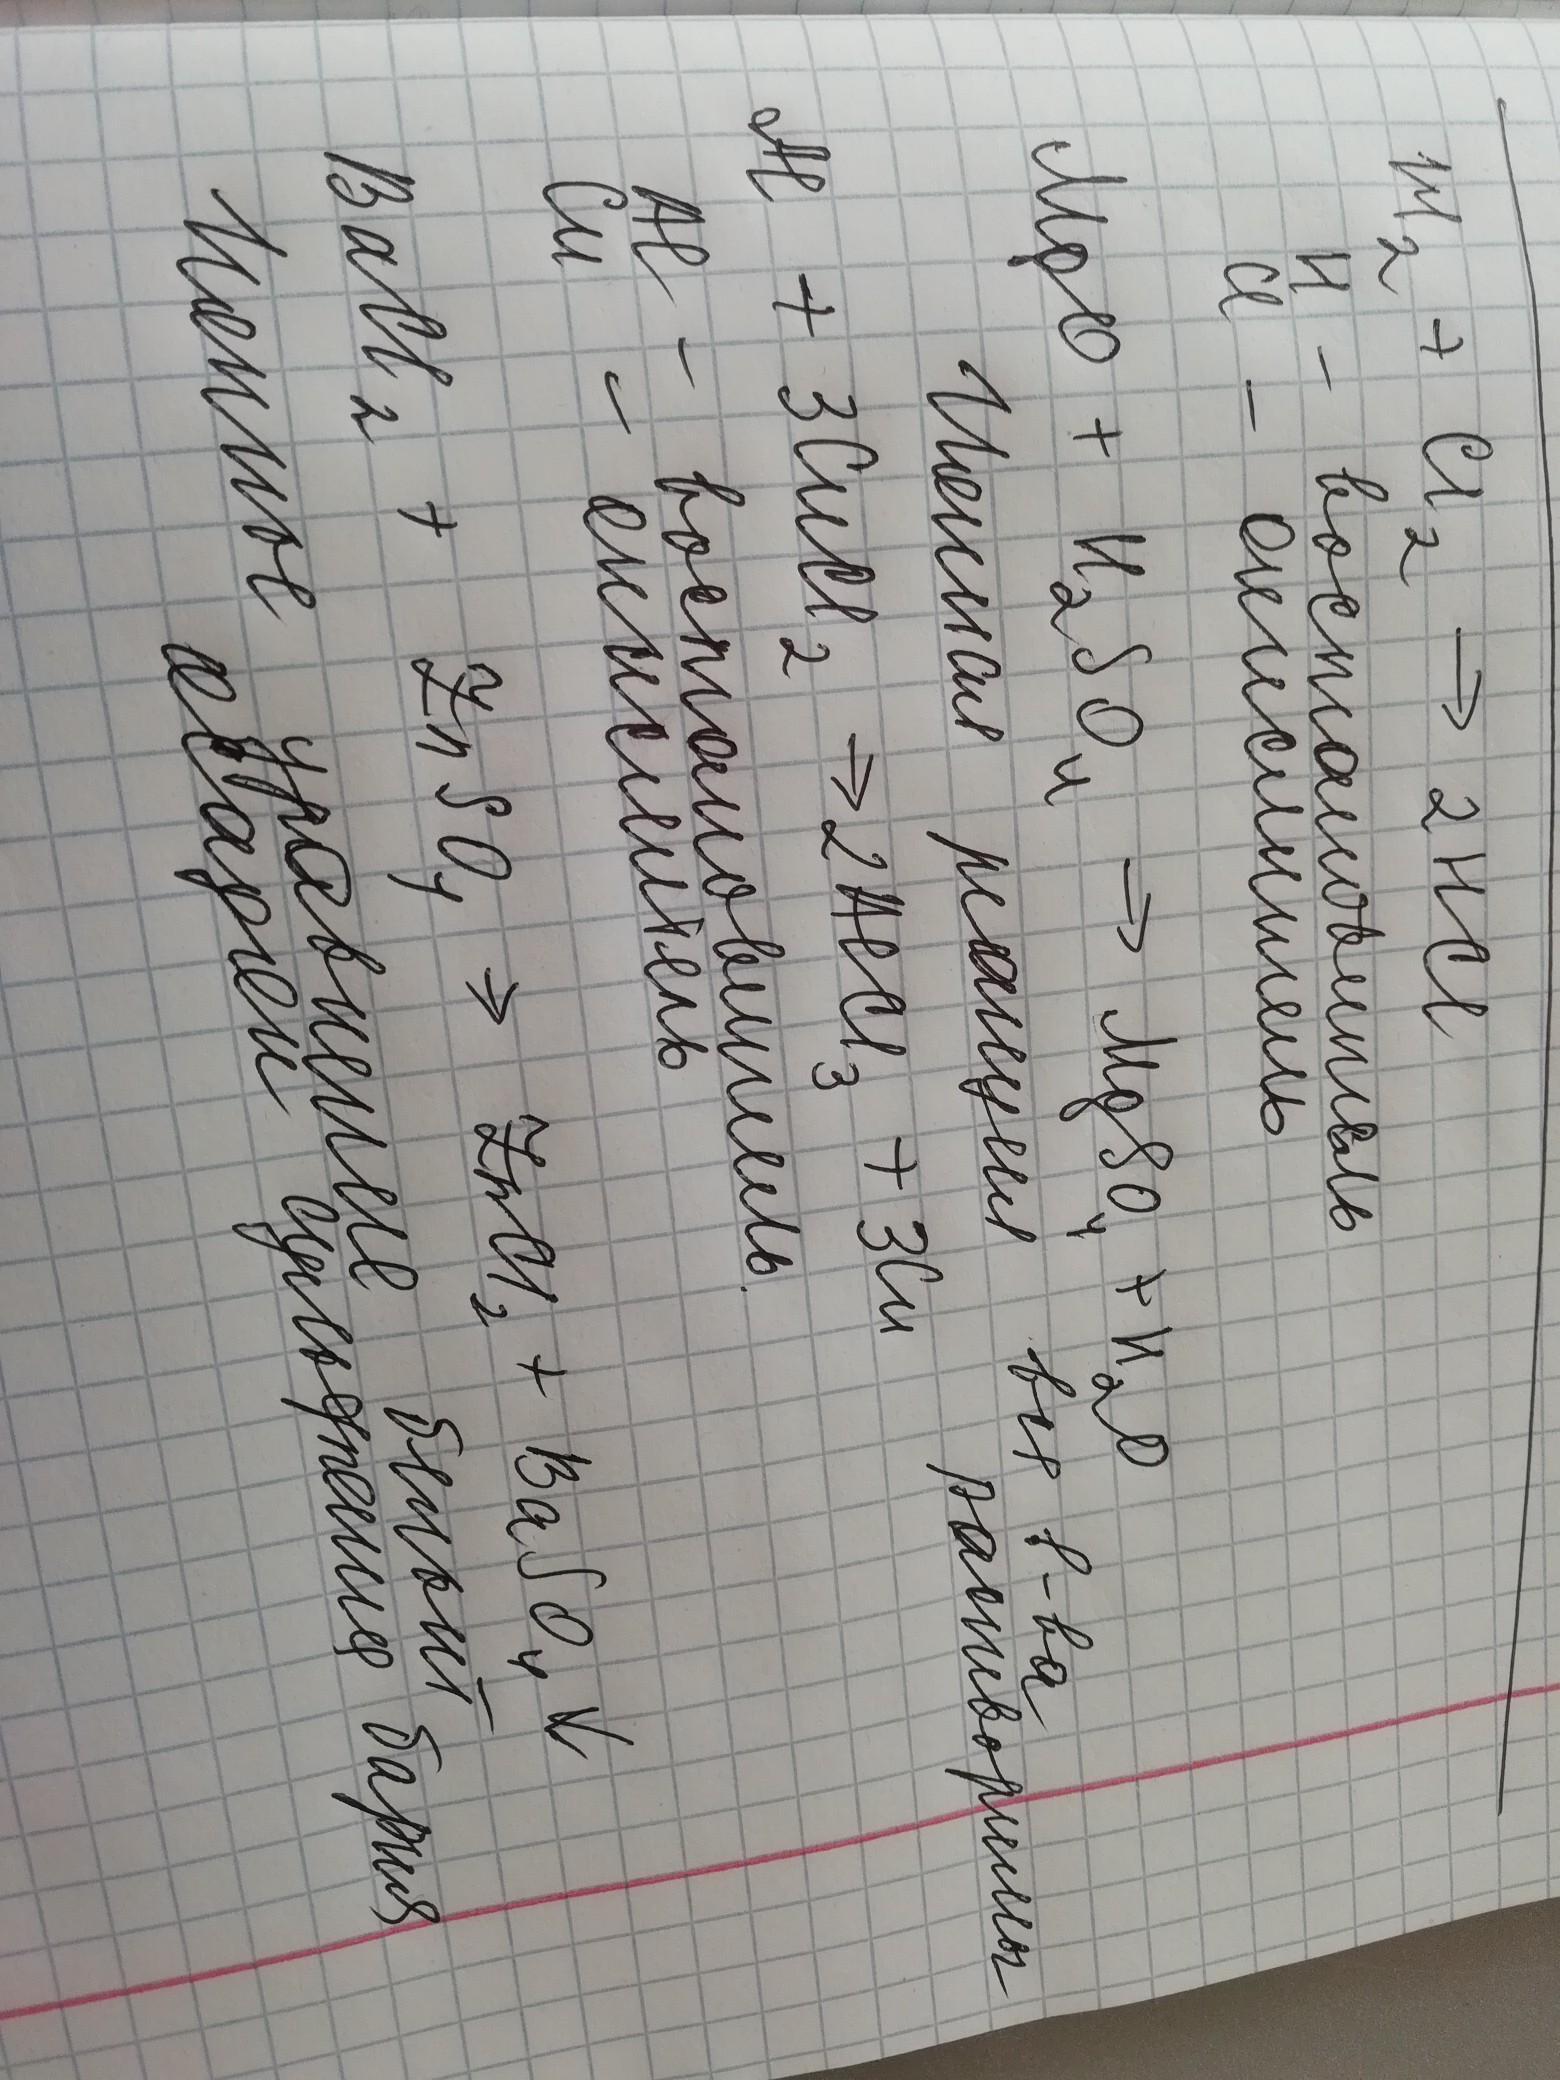 H₂ + Cl₂ → 2HCl
H - восстановитель
Cl - окислитель
MgO + H₂SO₄ → MgSO₄ + H₂O
реакция все в-ва растворимы
Al + 3CuCl₂ → 2AlCl₃ + 3Cu
Al - восстановитель
Cu - окислитель
BaCl₂ + ZnSO₄ → ZnCl₂ + BaSO₄↓
уравнение белый -
осадок сульфата бария